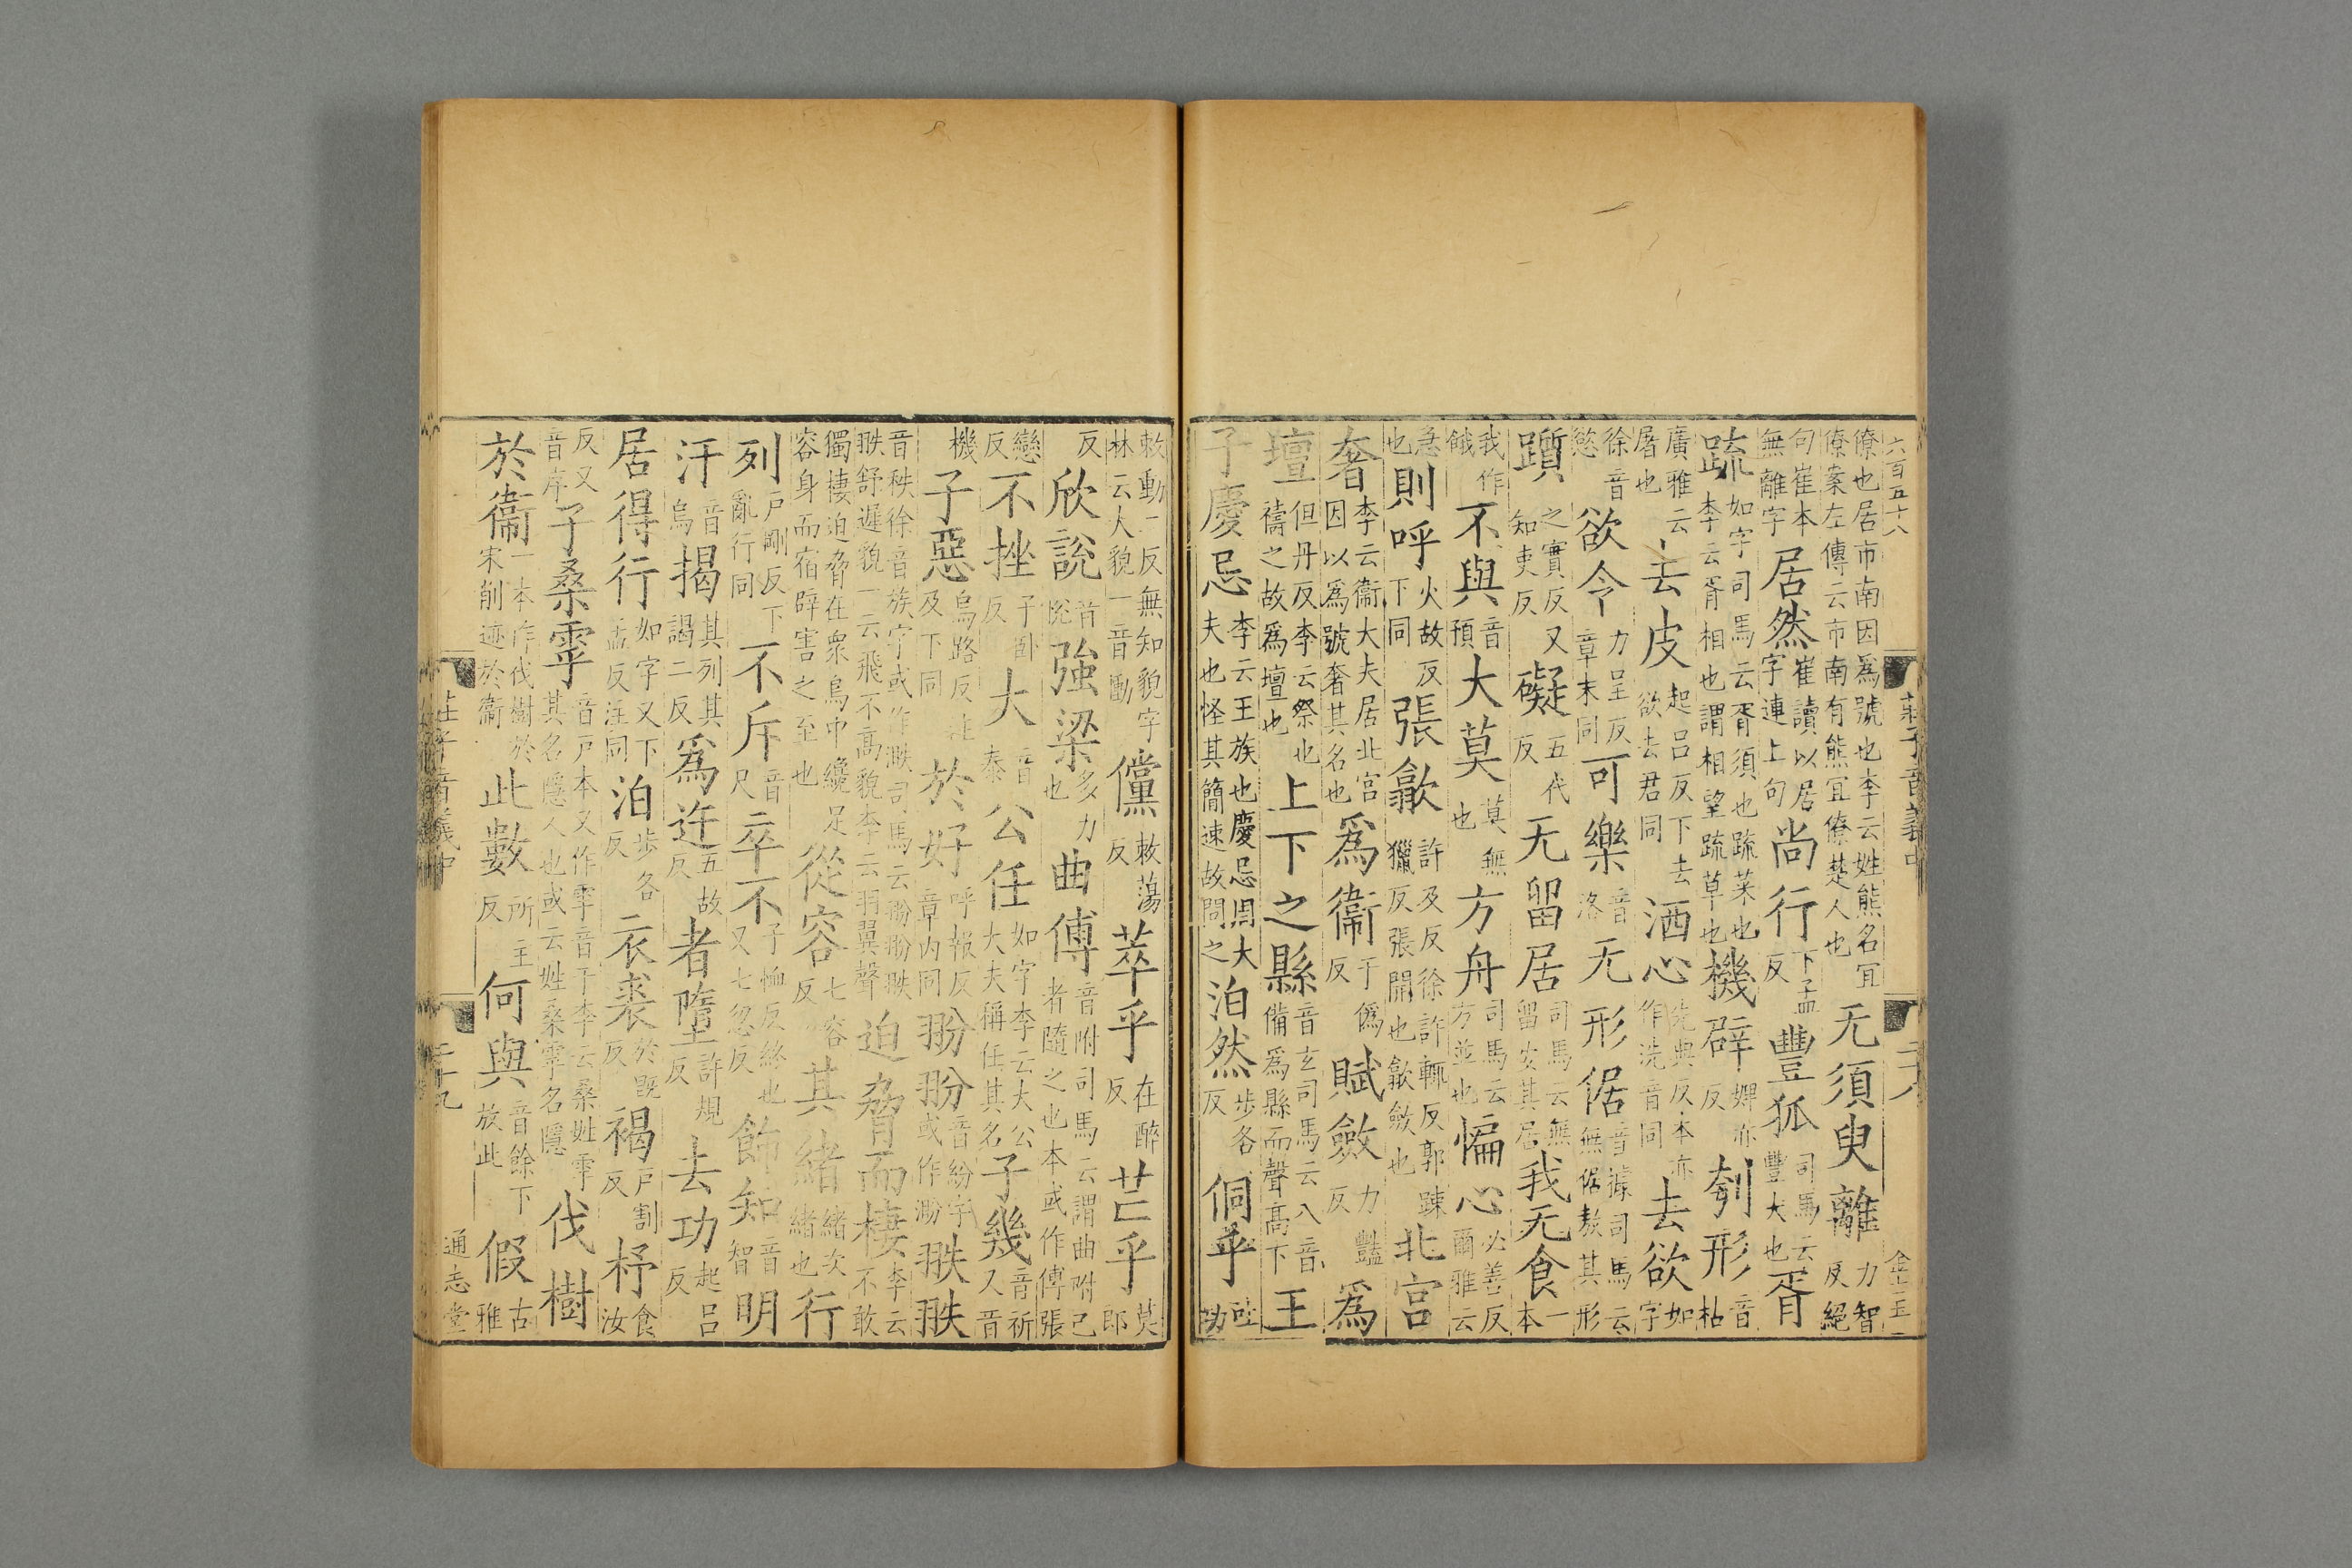 六百五十八 莊子音義中 二十八 金士玉
僚也居市南因爲號也李云姓熊名宜僚案左傳云市南有熊宜僚楚人也 无須臾離 力智反絕
句崔本無離字 居然 崔讀以居字連上句 尚行 下孟反 豐狐 司馬云豐大也 胥
疏 如字司馬云胥須也疏菜也李云胥相也謂相望疏草也 機辟 婢亦反 刳形 音枯
廣雅云屠也 去皮 起呂反下去欲去君同 洒心 先典反本亦作洗音同 去欲 如字
徐音慾 欲令 力呈反章末同 可樂 音洛 无形倨 音據司馬云無倨敖其形
躓 之實反又知吏反 礙 五代反 无留居 司馬云無留安其居 我无食 一本
我作餓 不與 音預 大莫 莫無也 方舟 司馬云方並也 惼心 必善反爾雅云
急也 則呼 火故反下同 張歙 許及反徐許輒反郭踈獵反張開也歙斂也 北宮
奢 李云衞大夫居北宮因以爲號奢其名也 爲衞 于僞反 賦斂 力豔反 爲
壇 但丹反李云祭也禱之故爲壇也 上下之縣 音玄司馬云八音備爲縣而聲高下 王
子慶忌 李云王族也慶忌周大夫也怪其簡速故問之 泊然 步各反 侗乎 吐功
敕動二反無知貌字林云大貌一音慟 儻 敕蕩反 萃乎 在醉反 芒乎 莫郎
反 欣說 音悅 強梁 多力也 曲傅 音附司馬云謂曲附己者隨之也本或作傳張
戀反 不挫 子臥反 大 音泰 公任 如字李云大公大夫稱任其名 子幾 音祈又音
機 子惡 烏路反注及下同 於好 呼報反章內同 翂翂 音紛字或作 翐翐
音秩徐音族字或作 司馬云翂翂翐翐舒遲貌一云飛不高貌李云羽翼聲 迫脅而棲 李云不敢
獨棲迫脅在衆鳥中纔足容身而宿辟害之至也 從容 七容反 其緒 緒次緒也 行
列 戶剛反下亂行同 不斥 音尺 卒不 子恤反終也又七忽反 飾知 音智 明
汙 音烏 揭 其列其謁二反 爲迕 五故反 者墮 許規反 去功 起呂反
居得行 如字又下孟反注同 泊 步各反 衣裘 於旣反 褐 戶割反 杼 食汝
反又音序 子桑雽 音戶本又作雩音于李云桑姓雽其名隱人也或云姓桑雽名隱 伐樹
於衞 一本作伐樹於宋削迹於衞 此數 所主反 何與 音餘下放此 假 古雅
莊子音義中 二十九 通志堂